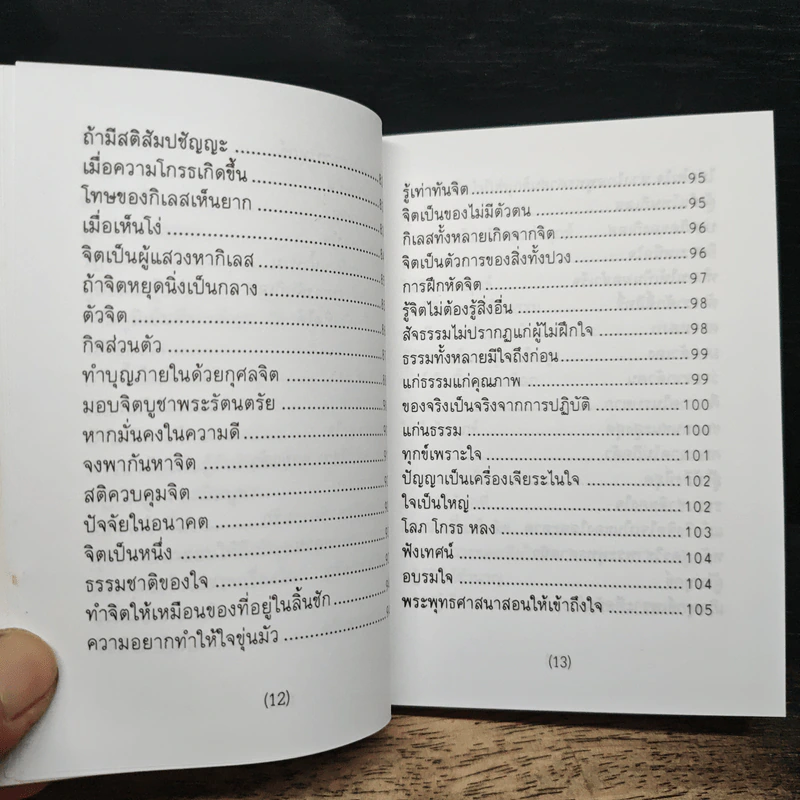 ถ้ามีสติสัมปชัญญะ
เมื่อความโกรธเกิดขึ้น
โทษของกิเลสเห็นยาก
เมื่อเห็นโง่
จิตเป็นผู้แสวงหากิเลส
ถ้าจิตหยุดนิ่งเป็นกลาง
ตัวจิต
กิจส่วนตัว
ทำบุญภายในด้วยกุศลจิต
มอบจิตบูชาพระรัตนตรัย
หากมั่นคงในความดี
จงพากันหาจิต
สติควบคุมจิต
ปัจจัยในอนาคต
จิตเป็นหนึ่ง
ธรรมชาติของใจ
ทำจิตให้เหมือนของที่อยู่ในลิ้นชัก
ความอยากทำให้ใจขุ่นมัว
(12)
รู้เท่าทันจิต 95
จิตเป็นของไม่มีตัวตน 95
กิเลสทั้งหลายเกิดจากจิต 96
จิตเป็นตัวการของสิ่งทั้งปวง 96
การฝึกหัดจิต 97
รู้จิตไม่ต้องรู้สิ่งอื่น 98
สัจธรรมไม่ปรากฏแก่ผู้ไม่ฝึกใจ 98
ธรรมทั้งหลายมีใจถึงก่อน 99
แก่ธรรมแก่คุณภาพ 99
ของจริงเป็นจริงจากการปฏิบัติ 100
แก่นธรรม 100
ทุกข์เพราะใจ 101
ปัญญาเป็นเครื่องเจียระไนใจ 102
ใจเป็นใหญ่ 102
โลภ โกรธ หลง 103
ฟังเทศน์ 104
อบรมใจ 104
พระพุทธศาสนาสอนให้เข้าถึงใจ 105
(13)